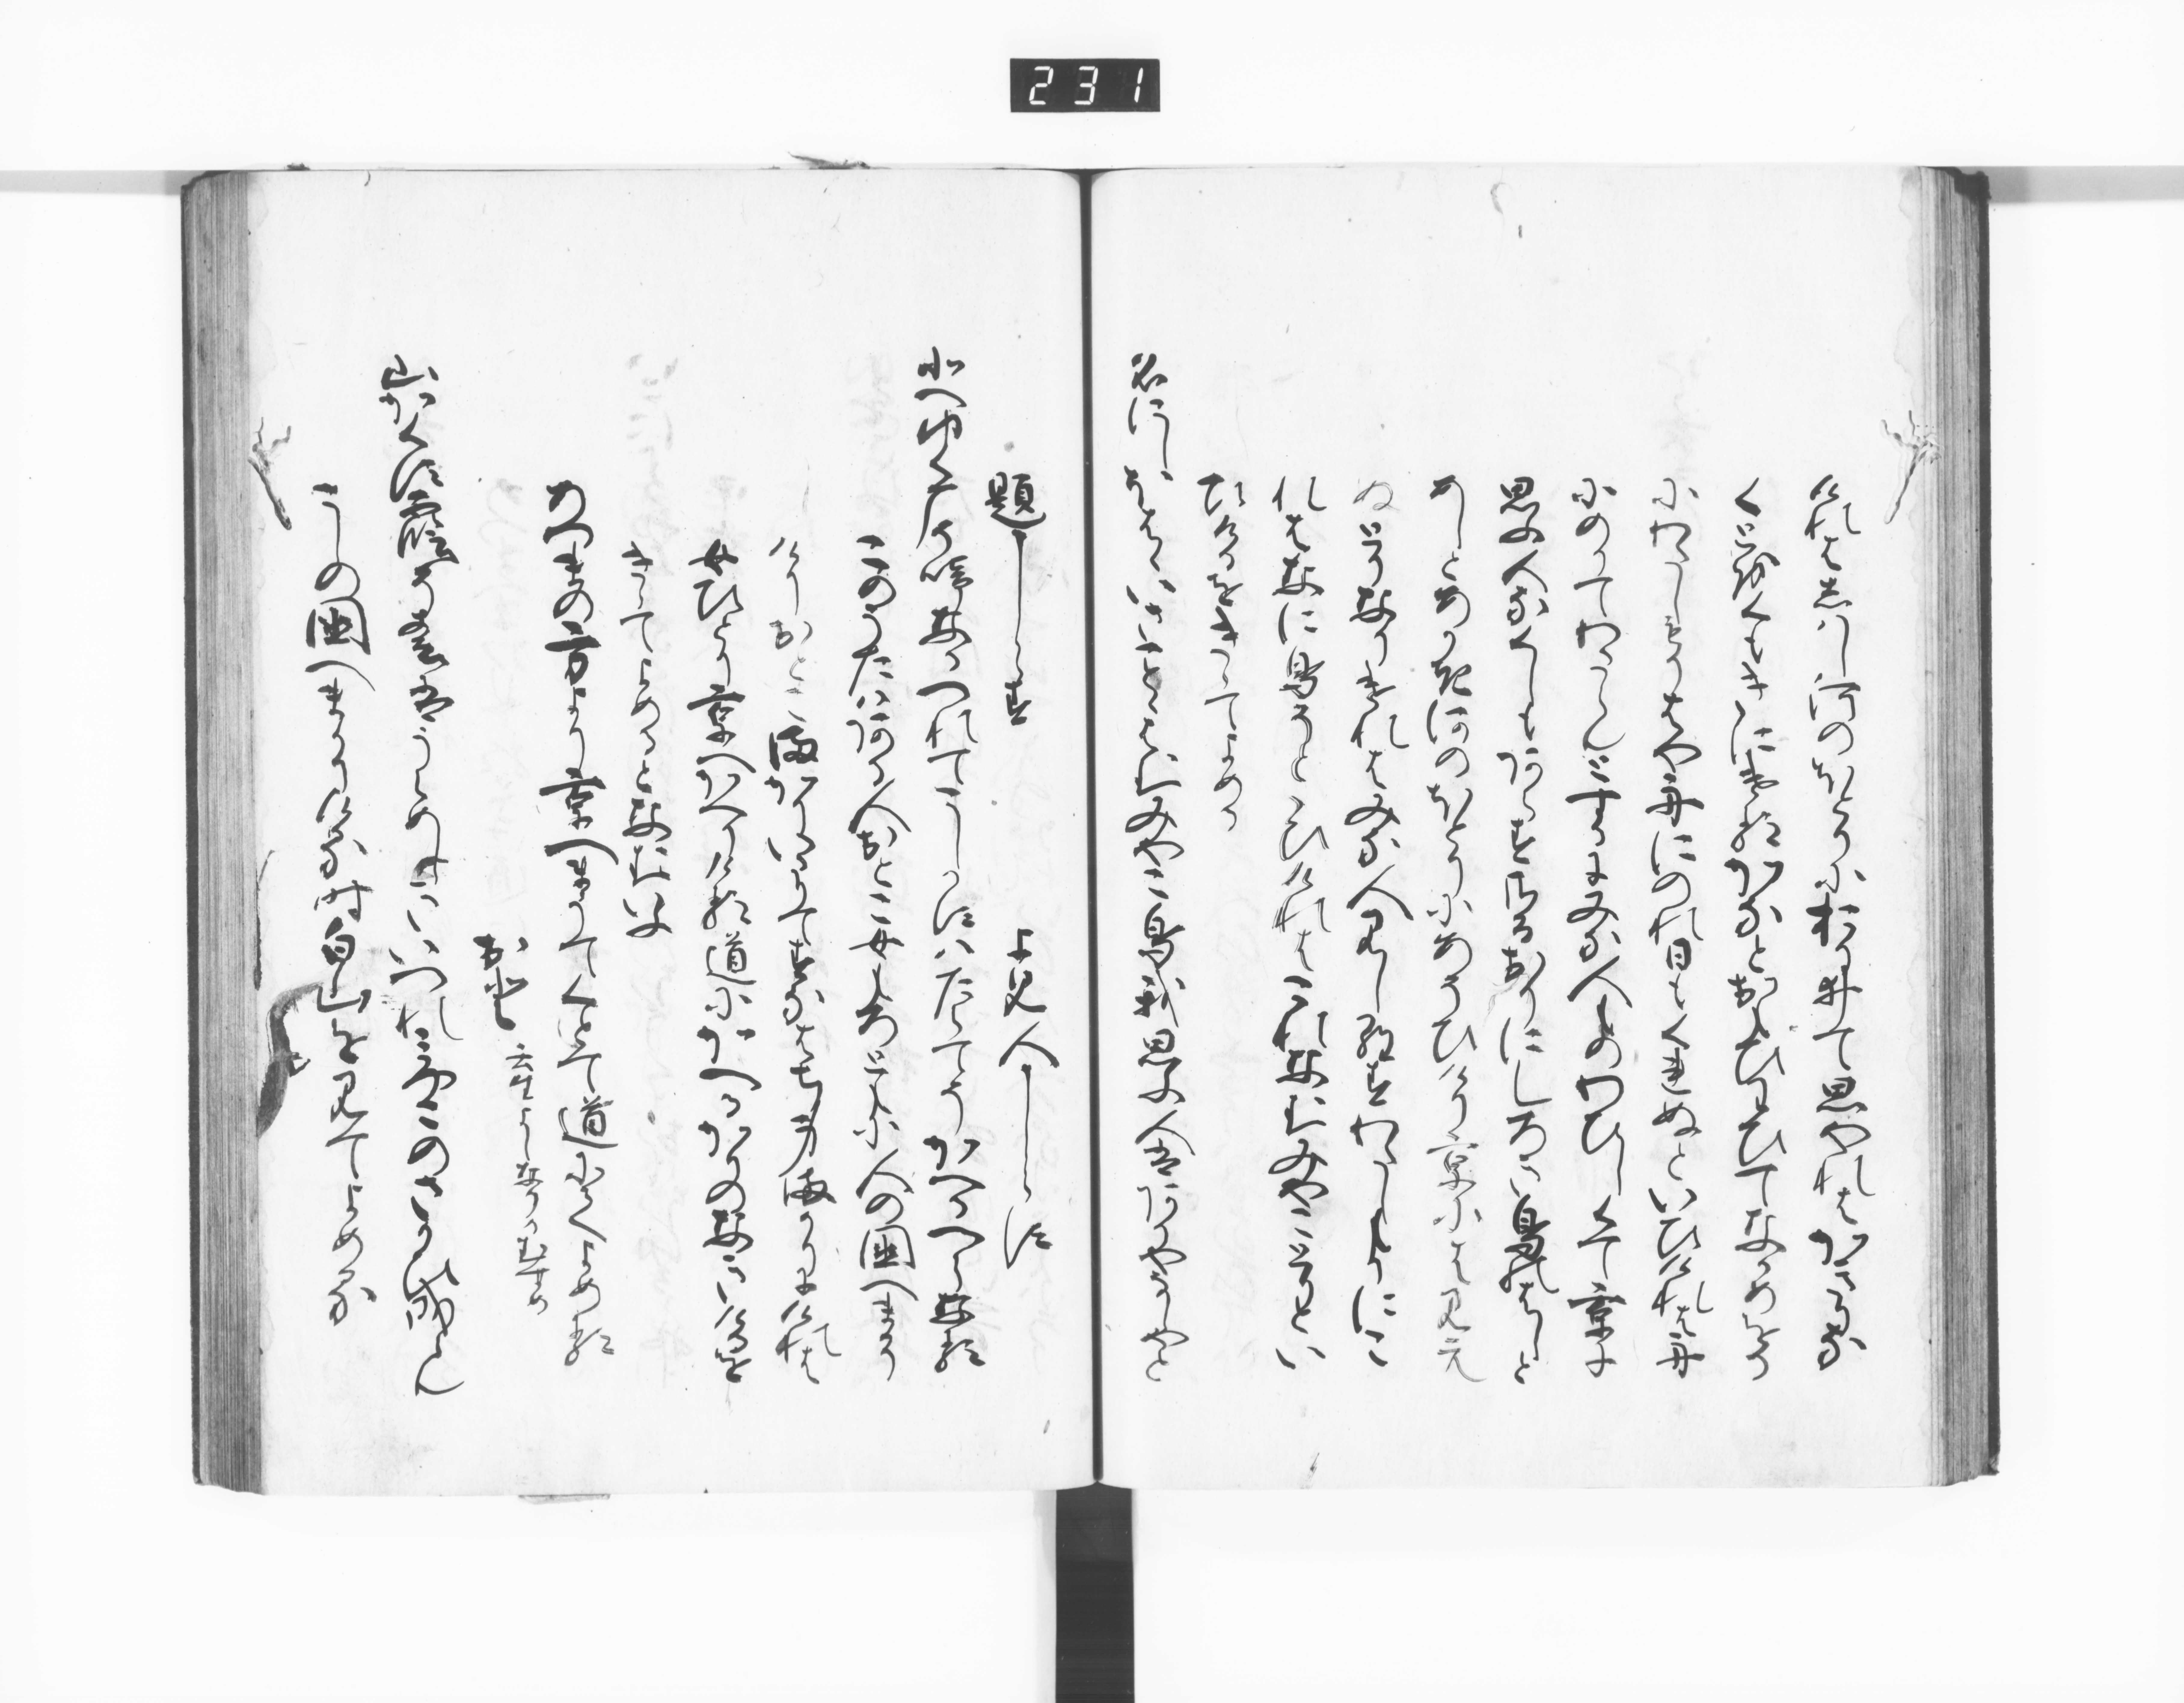 けれは志はし河のほとりにおりゐて思やれはかきりな
くとをくもきにける哉とおもひわひてなかめをる
にわたしもりはや舟にのれ日もくれぬといひけれは舟
にのりてわたらんとするにみな人ものわひしくて京に
思ふ人なくしもあらすさるおりにしろき鳥のはしと
あしとあかき河のほとりにあそひけり京には見え
ぬ鳥なりけれはみな人見しらすわたしもりにこ
れはなに鳥そとゝひけれはこれなんみやことりとい
ひけるをきゝてよめる
名にしおはゝいさことゝはんみやこ鳥我思ふ人は有やなしやと
題しらす　よみ人しらす
北へ行鴈そ鳴なるつれてこしかすはたらてそかへるへら也
このうたはある人おとこ女もろともに人の国へまかり
けりおとこまかりいたりてすなはち身まかりにけれは
女ひとり京へかへりける道にかへるかりのなきけるを
きゝてよめるとなんいふ
あつまの方より京へまうてくとて道にてよめる
おと 壬生よしなりか女
山かくす春の霞そうらめしきいつれみやこのさかひ成らん
こしの国へまかりける時白山を見てよめる